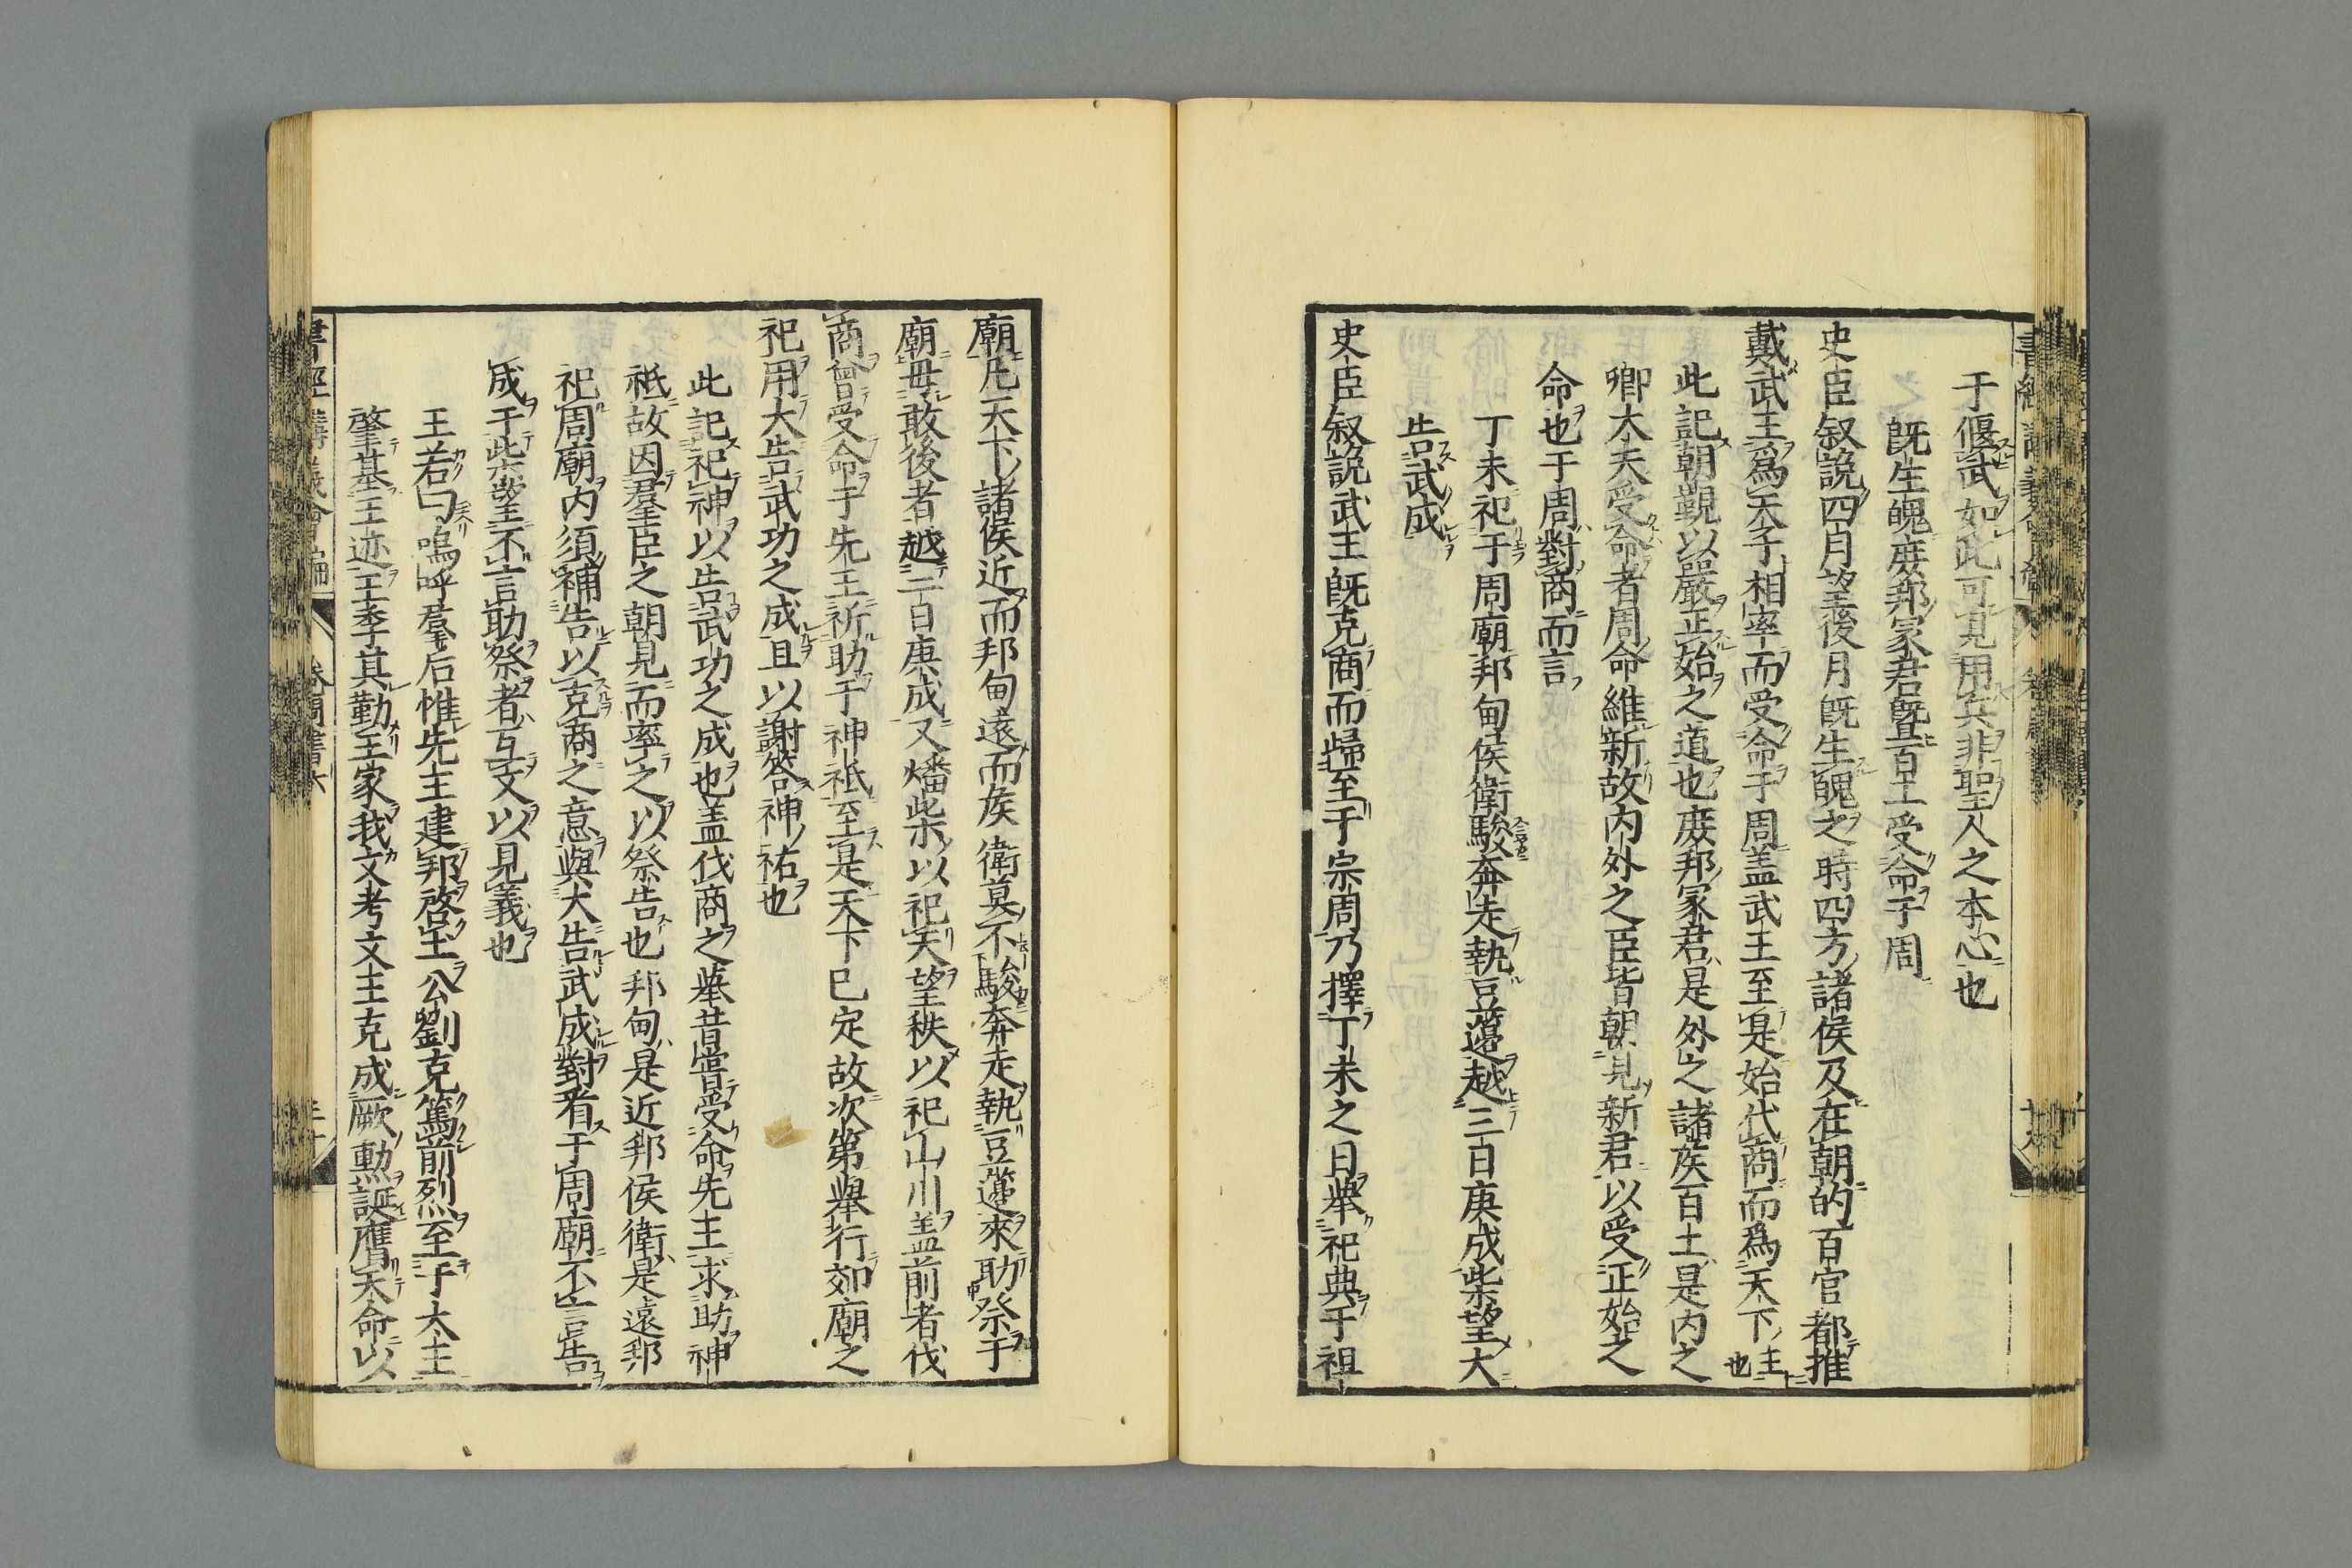 于偃武如此可見用兵非聖人之本心也
既生魄庶邦冢君曁百工受命于周
史臣叙說四月望後月既生魄之時四方諸侯及在朝的百官都推
戴武王爲天子相率而受命于周盖武王至是始代商而爲天下主也
此記朝覲以嚴正始之道也庶邦冢君是外之諸矦百工是内之
卿大夫受命者周命維新故内外之臣皆朝見新君以受正始之
命也于周對商而言
丁未祀于周廟邦甸侯衛駿奔走執豆籩越三日庚戌柴望大
告武成
史臣叙說武王既克商而歸至于宗周乃擇丁未之日舉祀典于祖
廟凡天下諸侯近而邦甸遠而矦衛莫不駿奔走執豆籩來助祭于
廟毋敢後者越三日庚戌又燔柴以祀天望秩以祀山川盖前者伐
商曾受命于先王祈助于神祇至是天下已定故次第舉行郊廟之
祀用大告武功之成且以謝答神祐也
此記祀神以告武功之成也盖伐商之舉昔嘗受命先王求助神
祇故因羣臣之朝見而率之以祭告也邦甸是近邦侯衛是遠邦
祀周廟内須補告以克商之意與大告武成對看于周廟不言告
成于柴望不言助祭者互文以見義也
王若曰嗚呼羣后惟先王建邦啓土公劉克篤前烈至于大王
肇基王迹王季其勤王家我文考文王克成厥勲誕膺天命以